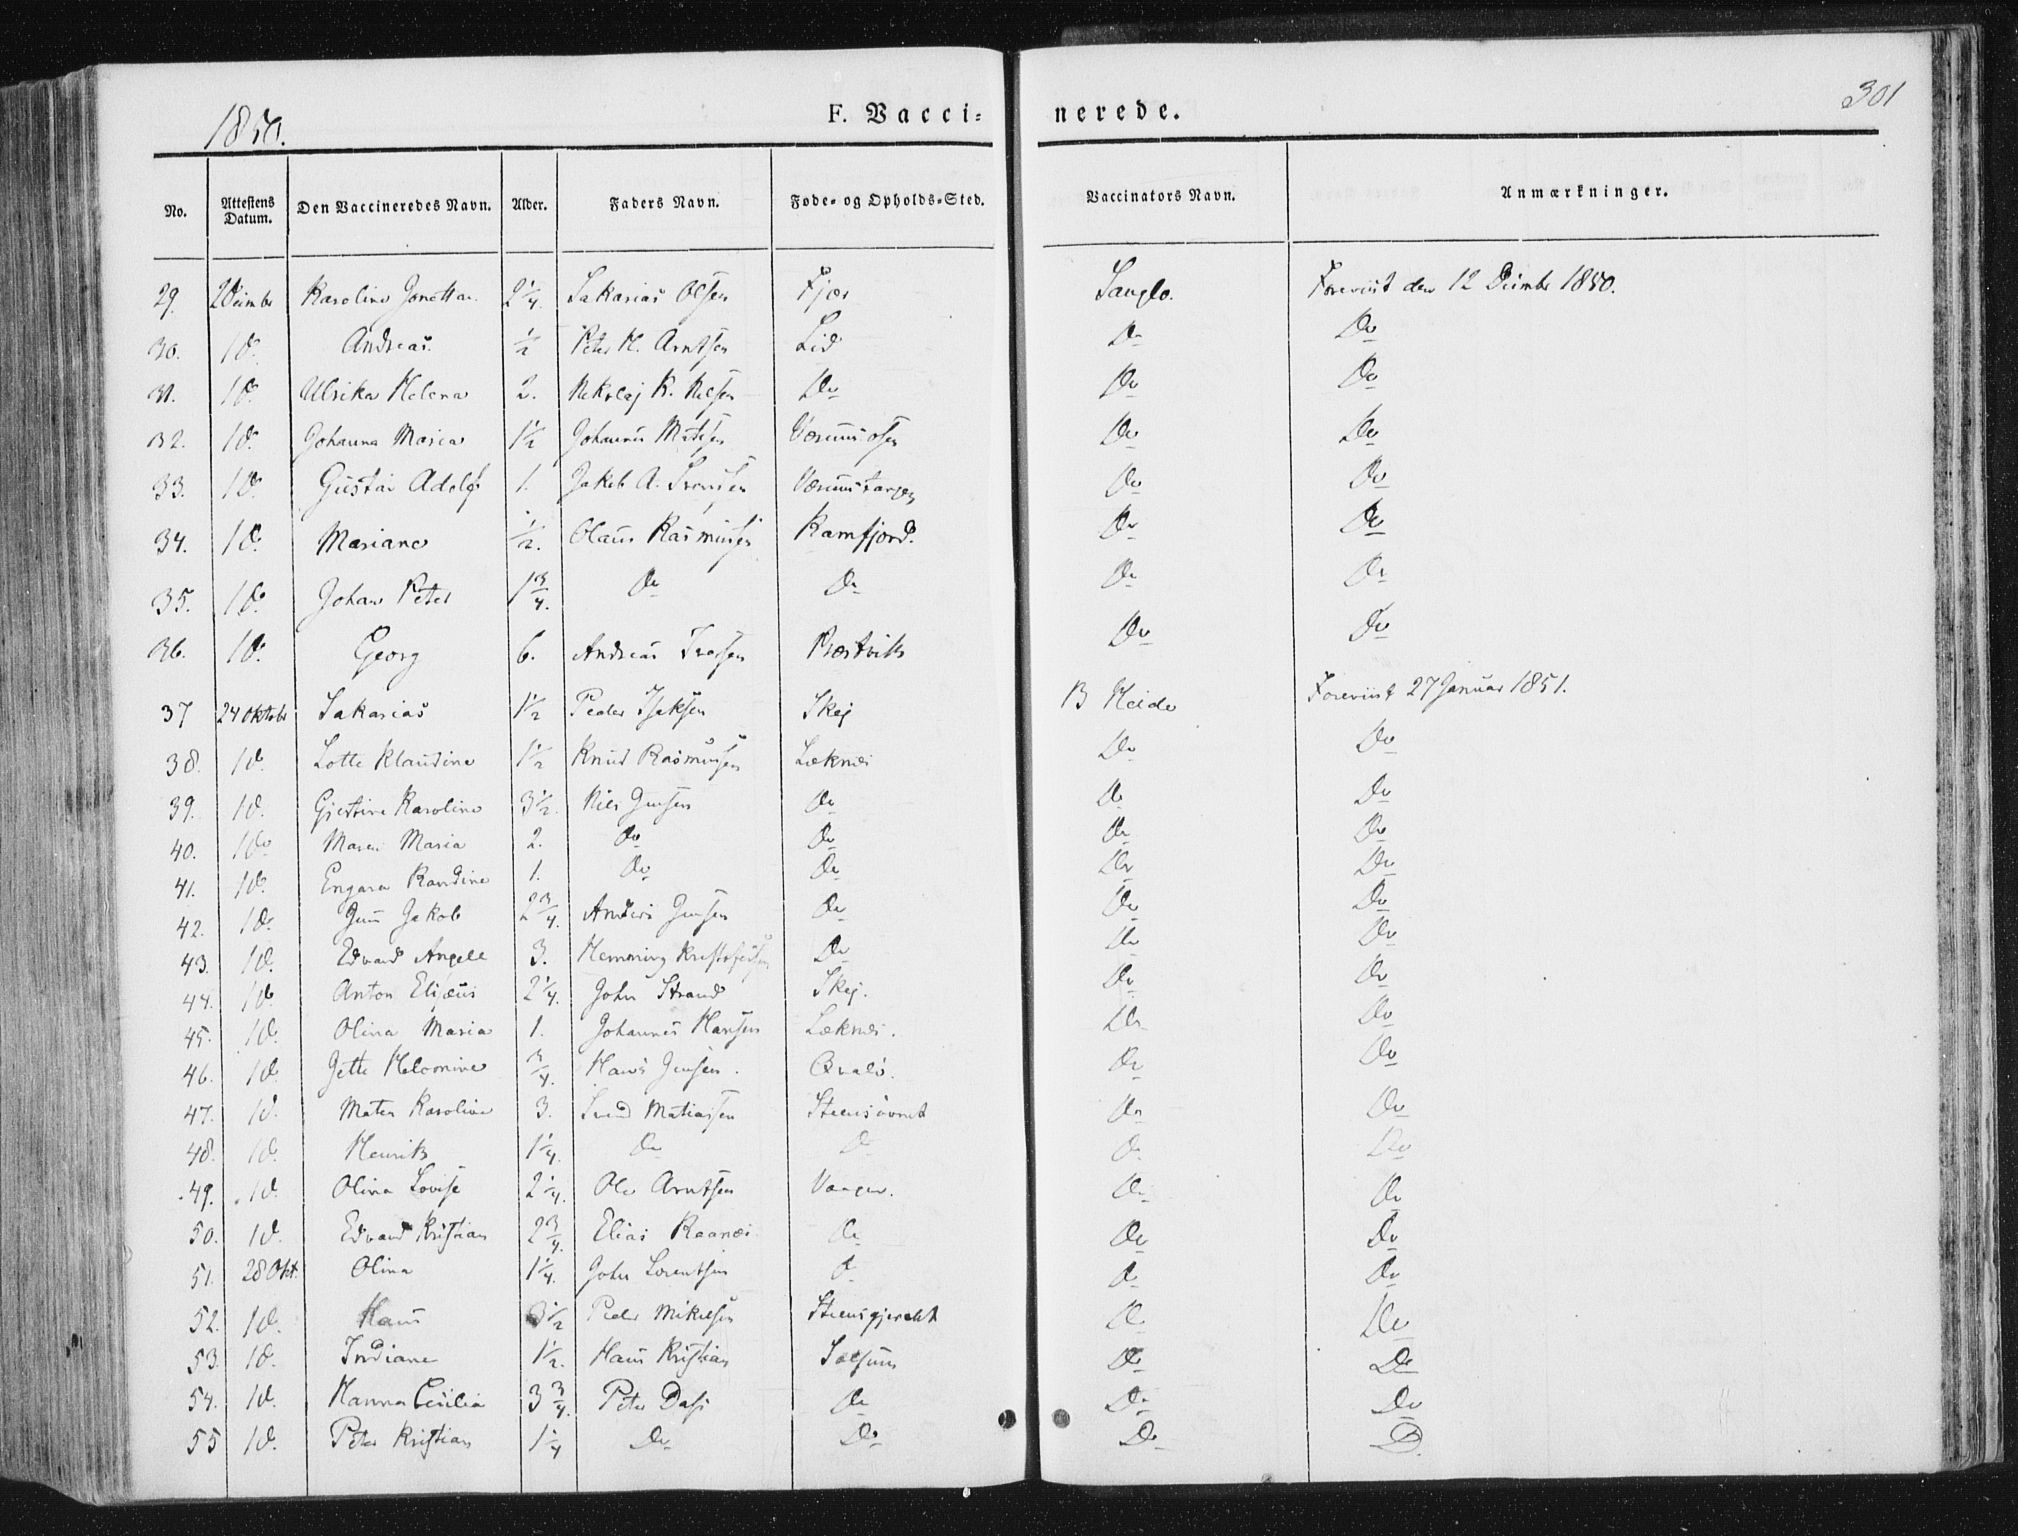 1850.
F. Vacci= nerede.
301
No. Attestens Datum. Den Vaccineredes Navn. Alder. Faders Navn. Føde- og Opholds-Sted. Vaccinators Navn. Anmærkninger.
29. Karoline 2 1/4. Sakarias Olsen Fjær Sanglo. Foreviist den 12 1850.
30. Andreas. 1/2 Peter H. Arntsen Lid Do Do
31. Ulrika Helena 2. Nikolaj K. Do Do Do
32. Johanna Maria 1 1/2 Johannes Do Do
33. Gustav Adolf 1. Jakob A. Do Do
34. Mariane 1/2. Olaus Rasmusen Ramfjord. Do Do
35. Johan Peter 1 3/4. Do Do Do Do
36. Georg 6. Andreas Do Do
37 24 Oktobr Sakarias 1 1/2 Peder Isaksen Skej B Heide Foreviist 27 Januar 1851.
38. Lotte Klaudine 1 1/2 Knud Rasmusen Læknes Do Do
39. Karoline 3 1/2. Nils Jensen Do Do Do
40. Maren Maria 2. Do Do Do Do
41. Randine 1. Do Do Do Do
42. Jakob 2 3/4. Anders Jensen Do Do Do
43. Edvard Angell 3. Hemming Kristofersen Do Do Do
44. Anton Elisæus 2 1/4. John Strand Skej. Do Do
45. Olina Maria 1. Johannes Hansen Læknes. Do Do
46. Jette 3/4. Hans Jensen. Qvalø. Do Do
47. Karoline 3. Svend Matiassen Do Do
48. Henrik 1 1/4. Do Do Do Do
49. Olina Lovise 2 1/4. Ole Arntsen Do Do
50. Edvard Kristian 2 3/4. Elias Do Do Do
51. 28 Okt. Olina 1 1/4. John Lorentsen Do Do Do
52. Hans 3 1/2 Peder Mikelsen Do Do
53. Indiane 1 1/2. Hans Kristian Do Do
54. Hanna Cesilia 3 3/4. Peter Dass Do Do Do
55 Peter Kristian 1 1/4 Do Do Do D.